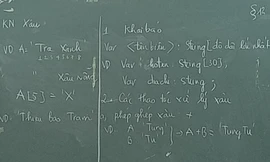 KN Xâu:
VD A: 'Tra Xanh'
'Xâu năm'
A[5] = 'X'
VD: 'Thua ba Tram
§12
1 Khai báo
Var <tên biến>: String[độ dài lớn nhất
VD Var hoten: String[30];
diachi: String;
2. Các thao tác xử lý xâu
phép ghép xâu +
VD: A 'Tung'
B 'Tu'
→ A+B = 'TungTu